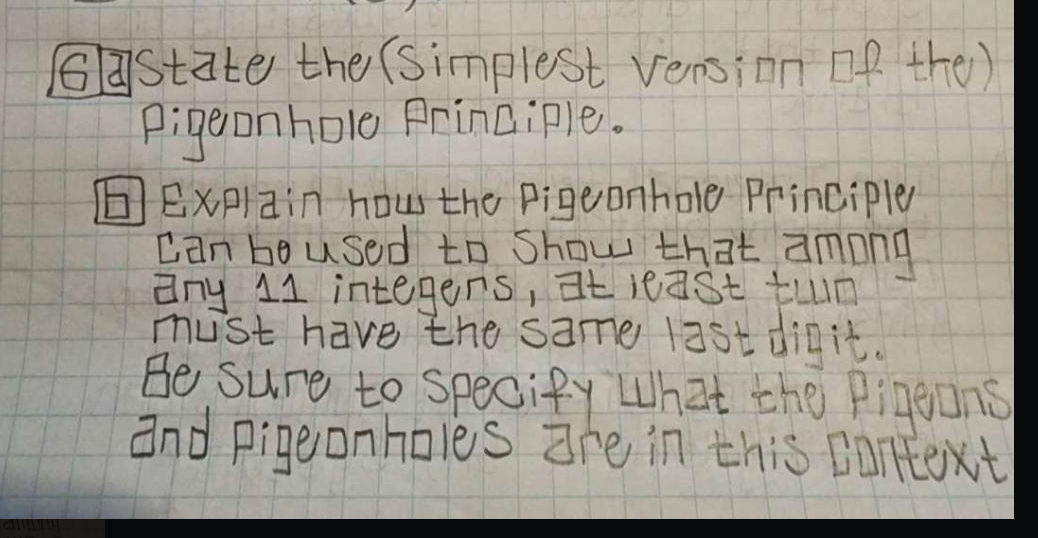 6 a State the (Simplest version of the)
Pigeonhole Principle.
b Explain how the Pigeonhole Principle
can be used to Show that among
any 11 integers, at least two
must have the same last digit.
Be sure to specify what the Pigeons
and pigeonholes are in this context